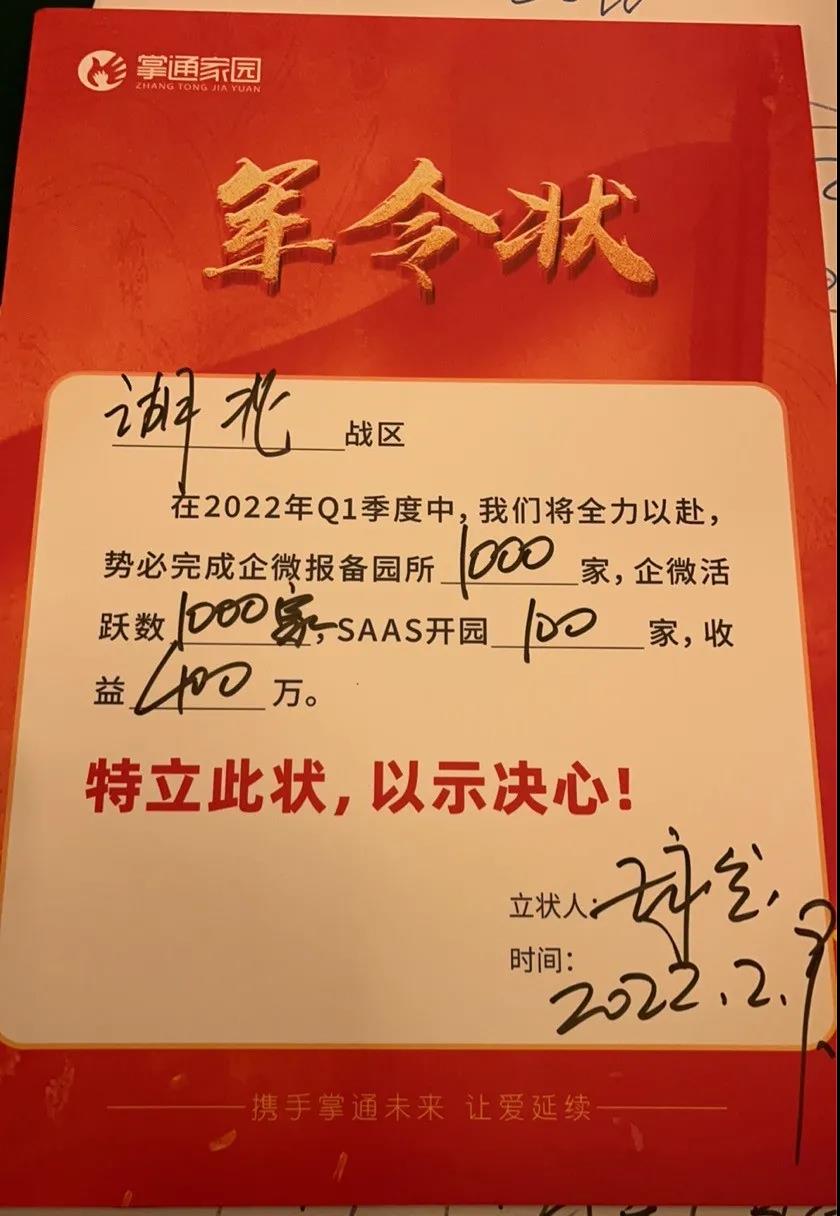 掌通家园
ZHANG TONG JIA YUAN
军令状
湖北战区
在2022年Q1季度中,我们将全力以赴,
势必完成企微报备园所1000家,企微活
跃数1000家,SAAS开园100家,收
益400万。
特立此状,以示决心!
立状人:
时间:
2022.2.
携手掌通未来 让爱延续